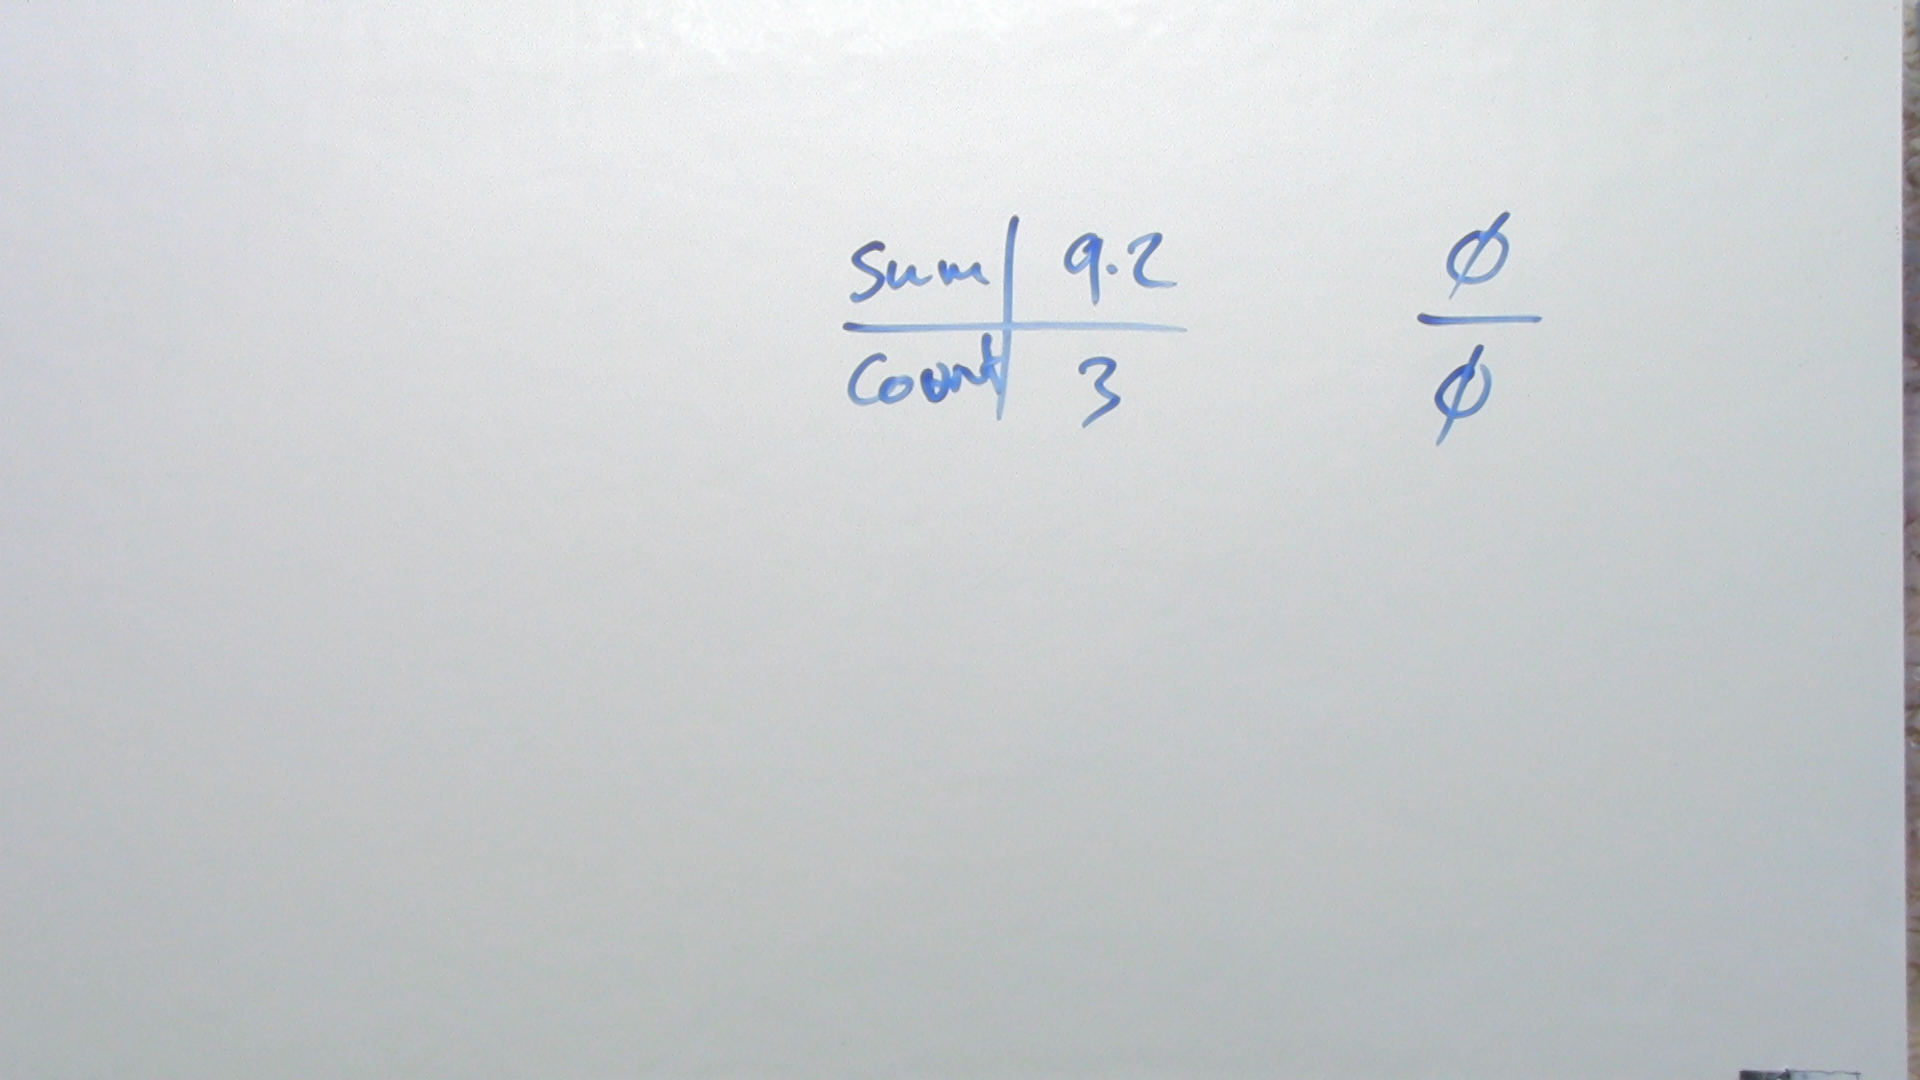 Sum 9.2 Ø
Count 3 Ø